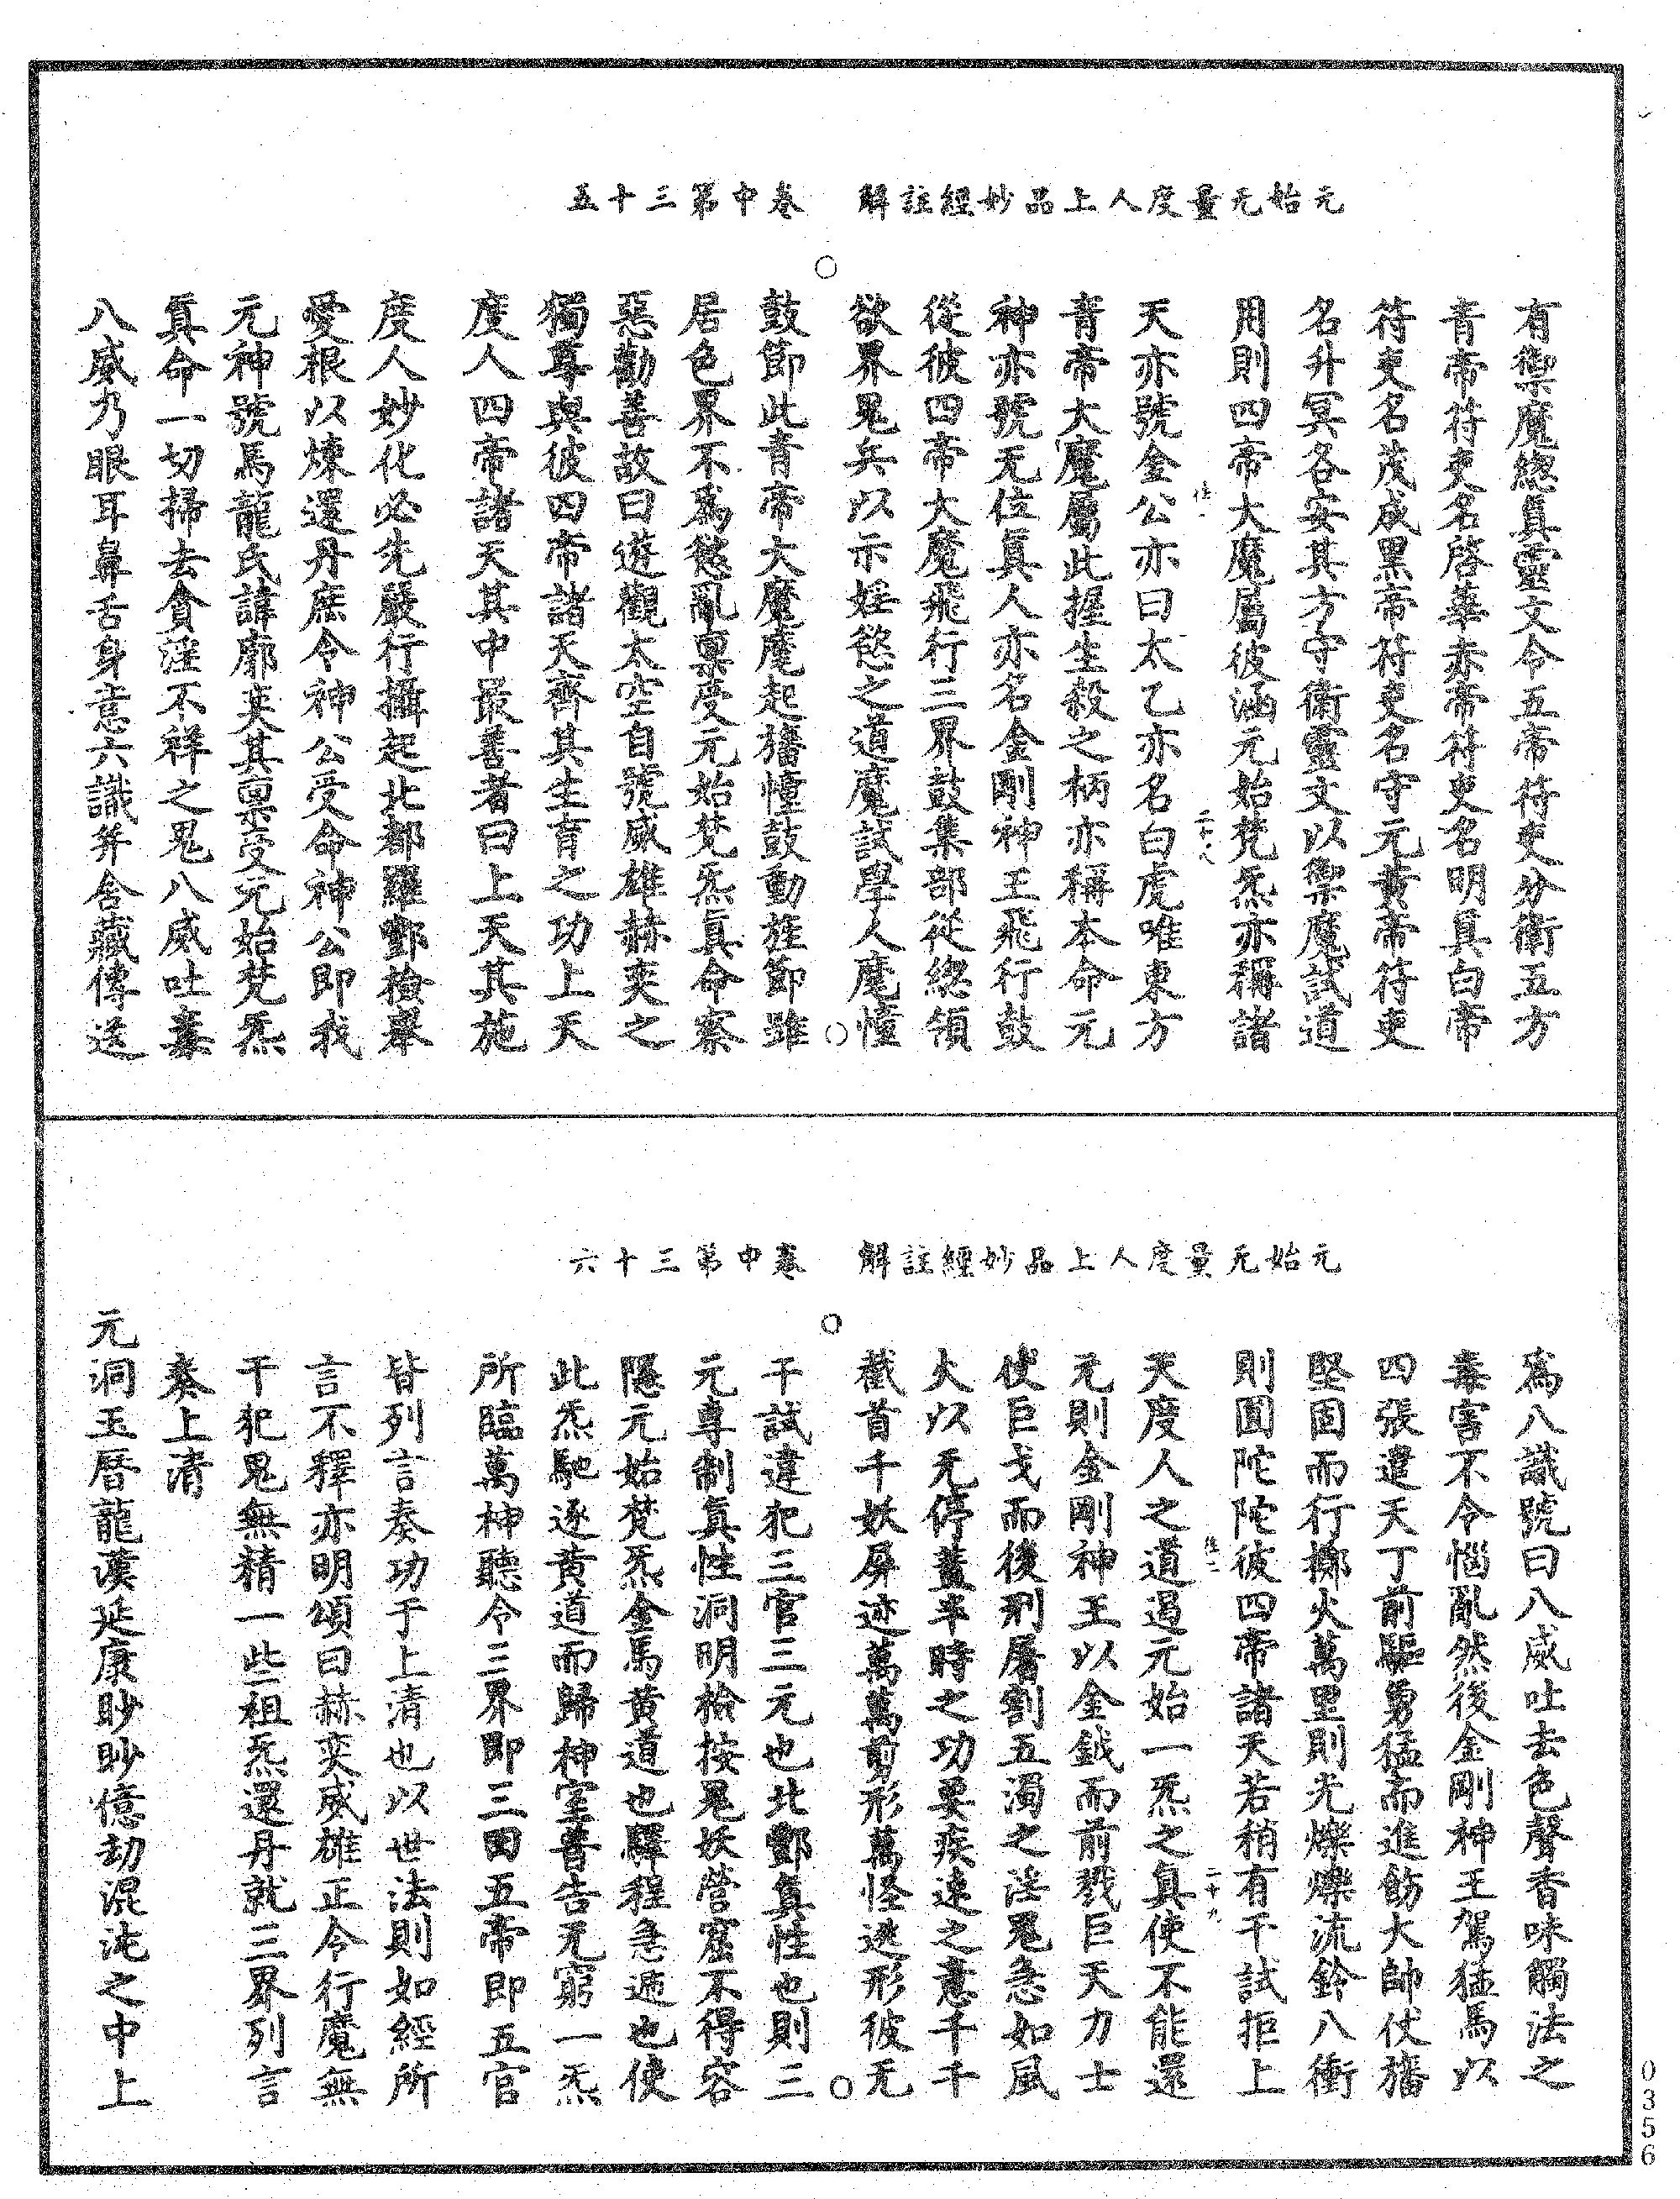 元始无量度人上品妙經註解　卷中第三十五
有禦魔緫真靈文令五帝符吏分衛五方
青帝符吏名啓華赤帝符吏名明真白帝
符吏名茂成黑帝符吏名守元黃帝符吏
名升冥各安其方守衛靈文以禦魔試道
用則四帝大魔屬彼涵元始梵炁亦稱諸
天亦號金公亦曰太乙亦名白虎唯東方
青帝大魔屬此握生殺之柄亦稱本命元
神亦號无位真人亦名金剛神王飛行鼓
從彼四帝大魔飛行三界鼓集部從緫領
欲界鬼兵以示婬慾之道魔試學人魔憧
鼓節此青帝大魔魔起旛憧鼓動旌節雖
居色界不爲慾亂稟受元始梵炁真命察
惡勸善故曰遊觀太空自號威雄赫奕之
獨尊與彼四帝諸天齊其生育之功上天
度人四帝諸天其中最善者曰上天其施
度人妙化必先嚴行攝起北都羅酆檢舉
愛根以煉還丹庶令神公受命神公即我
元神號馬龍氏諱廓奕其稟受元始梵炁
真命一切掃去貪淫不祥之鬼八威吐毒
八威乃眼耳鼻舌身意六識并舍藏傳送
元始无量度人上品妙經註解　卷中第三十六
爲八識號曰八威吐去色聲香味觸法之
毒害不令惱亂然後金剛神王駕猛馬以
四張遣天丁前驅勇猛而進飭大帥仗旛
堅固而行擲火萬里則光爍爍流鈴八衝
則圓陀陀彼四帝諸天若稍有干試拒上
天度人之道遏元始一炁之真使不能還
元則金剛神王以金鉞而前戮巨天力士
仗巨戈而後刑屠割五濁之淫鬼急如風
火以无停蓋半時之功要疾速之意千千
截首千妖屏迹萬萬剪形萬怪逃形彼无
干試違犯三官三元也北酆真性也則三
元專制真性洞明檢按鬼妖營窟不得容
隱元始梵炁金馬黃道也驛程急遞也使
此炁馳逐黃道而歸神室普告无窮一炁
所臨萬神聽令三界即三田五帝即五官
皆列言奏功于上清也以世法則如經所
言不釋亦明頌曰赫奕威雄正令行魔無
干犯鬼無精一些祖炁還丹就三界列言
奏上清
元洞玉曆龍漢延康眇眇億劫混沌之中上
二十八
二十九
0356